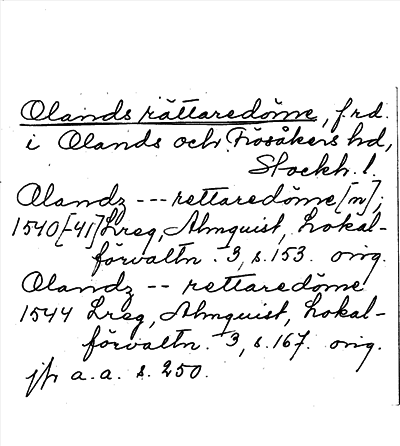 Olands rättaredöme, f.rd.
i Olands och Frösåkers hd,
Stockh. l.
Olandz --- rettaredöme[n];
1540[-41] Lreg, Almquist, Lokal-
förvaltn. 3, s. 153. orig.
Olandz -- rettaredöme
1544 Lreg, Almquist, Lokal-
förvaltn. 3, s. 167. orig.
jfr a.a. s. 250.